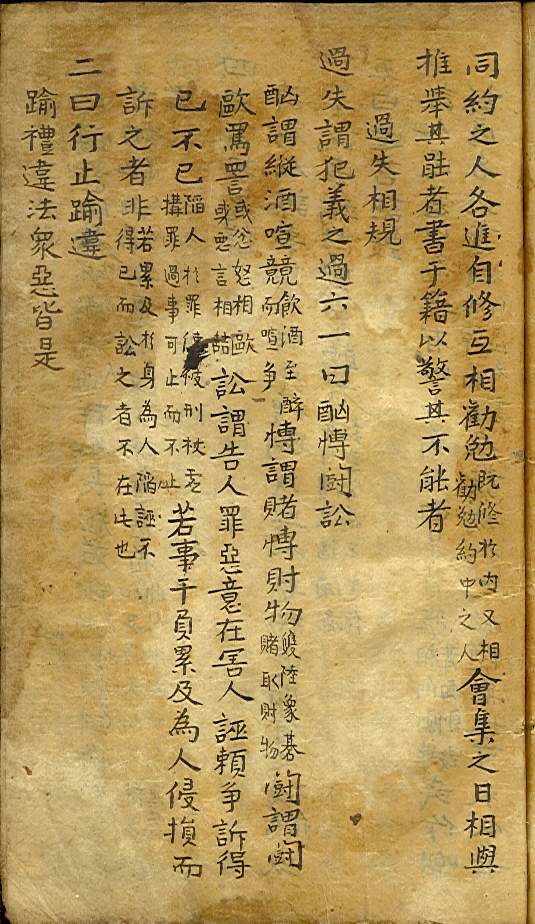 同約之人各進自修互相勸勉既修於內又相勸勉約中之人會集之日相與
推舉其能者書于籍以警其不能者
過失相規
過失謂犯義之過六一曰酗愽鬪訟
酗謂縱酒喧競飮酒至醉而喧爭愽謂賭愽財物雙陸象碁賭取財物鬪謂鬪
歐罵詈或忿怒相歐或惡言相詰訟謂告人罪惡意在害人誣賴爭訴得
已不已陷人於罪使被刑杖虛搆罪過事可止而不止若事干負累及為人侵損而
訴之者非若累及於身為人陷誣不得已而訟之者不在此也
二曰行止踰違
踰禮違法衆惡皆是